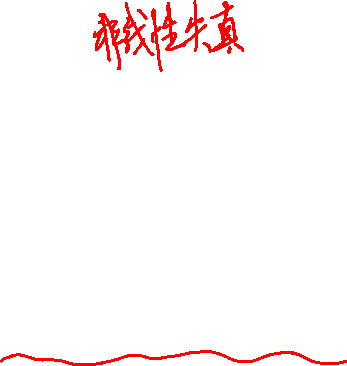 非线性失真